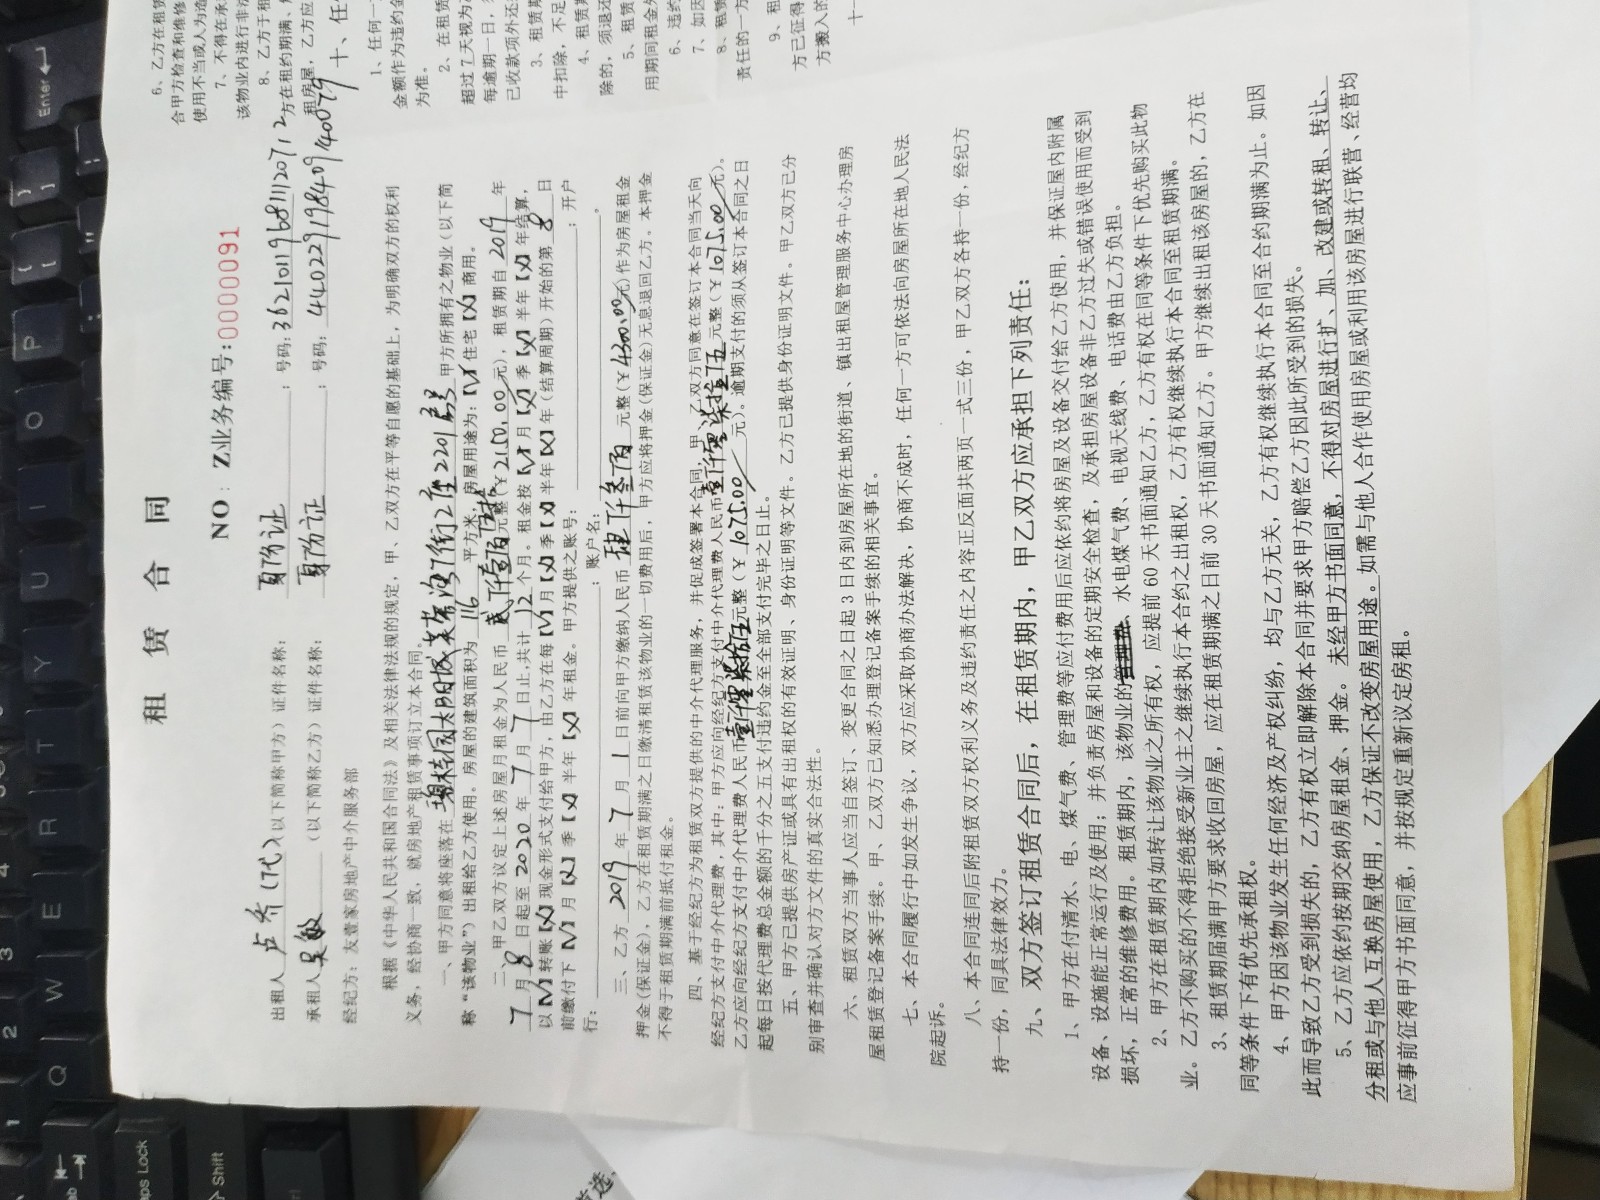 租 赁 合 同
NO: Z业务编号:0000091
出租人 卢乔(代)(以下简称甲方)证件名称: 身份证 ;号码:
承租人吴敏(以下简称乙方)证件名称: 身份证 ;号码:
经纪方:友壹家房地产中介服务部
根据《中华人民共和国合同法》及相关法律法规的规定,甲、乙双方在平等自愿的基础上,为明确双方的权利
义务,经协商一致,就房地产租赁事项订立本合同。
一、甲方同意将座落在 碧桂园大朗城 街2座2201房 甲方所拥有之物业(以下简
称“该物业”)出租给乙方使用。房屋的建筑面积为 116 平方米,房屋用途为:【√】住宅【X】商用。
二、甲乙双方议定上述房屋月租金为人民币 贰仟壹佰伍拾元整(¥2150.00元),租赁期自 2019 年
7 月 8 日起至 2020 年 7 月 7 日止,共计 12 个月。租金按【√】月【X】季【X】半年【X】年结算,
以【√】转账【X】现金形式支付给甲方,由乙方在每【√】月【X】季【X】半年【X】年(结算周期)开始的第 8 日
前缴付下【√】月【X】季【X】半年【X】年租金。甲方提供之账号: ;开户
行: ;账户名: 。
三、乙方 2019 年 7 月 1 日前向甲方缴纳人民币 肆仟叁佰 元整(¥4300.00元)作为房屋租金
押金(保证金),乙方在租赁期满之日缴清租赁该物业的一切费用后,甲方应将押金(保证金)无息退回乙方。本押金
不得于租赁期满前抵付租金。
四、基于经纪方为租赁双方提供的中介代理服务,并促成签署本合同,甲、乙双方同意在签订本合同当天向
经纪方支付中介代理费,其中:甲方应向经纪方支付中介代理费人民币壹仟零柒拾伍元整(¥1075.00元)。
乙方应向经纪方支付中介代理费人民币壹仟零柒拾伍元整(¥1075.00元)。逾期支付的须从签订本合同之日
起每日按代理费总金额的千分之五支付违约金至全部支付完毕之日止。
五、甲方已提供房产证或具有出租权的有效证明、身份证明等文件。乙方已提供身份证明文件。甲乙双方已分
别审查并确认对方文件的真实合法性。
六、租赁双方当事人应当自签订、变更合同之日起3日内到房屋所在地的街道、镇出租屋管理服务中心办理房
屋租赁登记备案手续。甲、乙双方已知悉办理登记备案手续的相关事宜。
七、本合同履行中如发生争议,双方应采取协商办法解决,协商不成时,任何一方可依法向房屋所在地人民法
院起诉。
八、本合同连同后附租赁双方权利义务及违约责任之内容正反面共两页一式三份,甲乙双方各持一份,经纪方
持一份,同具法律效力。
九、双方签订租赁合同后,在租赁期内,甲乙双方应承担下列责任:
1、甲方在付清水、电、煤气费、管理费等应付费用后应依约将房屋及设备交付给乙方使用,并保证屋内附属
设备、设施能正常运行及使用;并负责房屋和设备的定期安全检查,及承担房屋设备非乙方过失或错误使用而受到
损坏,正常的维修费用。租赁期内,该物业的管理费、水电煤气费、电视天线费、电话费由乙方负担。
2、甲方在租赁期内如转让该物业之所有权,应提前60天书面通知乙方,乙方有权在同等条件下优先购买此物
业。乙方不购买的不得拒绝接受新业主之继续执行本合约之出租权,乙方有权继续执行本合同至租赁期满。
3、租赁期届满甲方要求收回房屋,应在租赁期满之日前30天书面通知乙方。甲方继续出租该房屋的,乙方在
同等条件下有优先承租权。
4、甲方因该物业发生任何经济及产权纠纷,均与乙方无关,乙方有权继续执行本合同至合约期满为止。如因
此而导致乙方受到损失的,乙方有权立即解除本合同并要求甲方赔偿乙方因此所受到的损失。
5、乙方应依约按期交纳房屋租金、押金。未经甲方书面同意,不得对房屋进行扩、加、改建或转租、转让、
分租或与他人互换房屋使用,乙方保证不改变房屋用途。如需与他人合作使用房屋或利用该房屋进行联营、经营均
应事前征得甲方书面同意,并按规定重新议定房租。
6、乙方在租赁
合甲方检查和维修
使用不当或人为造
7、不得在承
该物业内进行非法
8、乙方于租
方在租约期满、
租房屋,乙方应
十、任
1、任何一
金额作为违约金
为准。
2、在租赁
超过7天视为
每逾期一日,
已收款项外还
3、租赁期
中扣除,不足
4、租赁期
除的,须退还
5、租赁
用期间租金外
6、违约
7、如因
8、租赁
责任的一方
9、租
方已征得
方搬入的
十一
Enter
P
O
I
U
Y
T
R
E
W
Q
1
2
3
4
Caps Lock
Shift